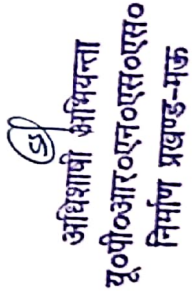 अधिशाषी अभियन्ता
यू०पी०आर०एन०एस०एस०
निर्माण प्रखण्ड-मऊ